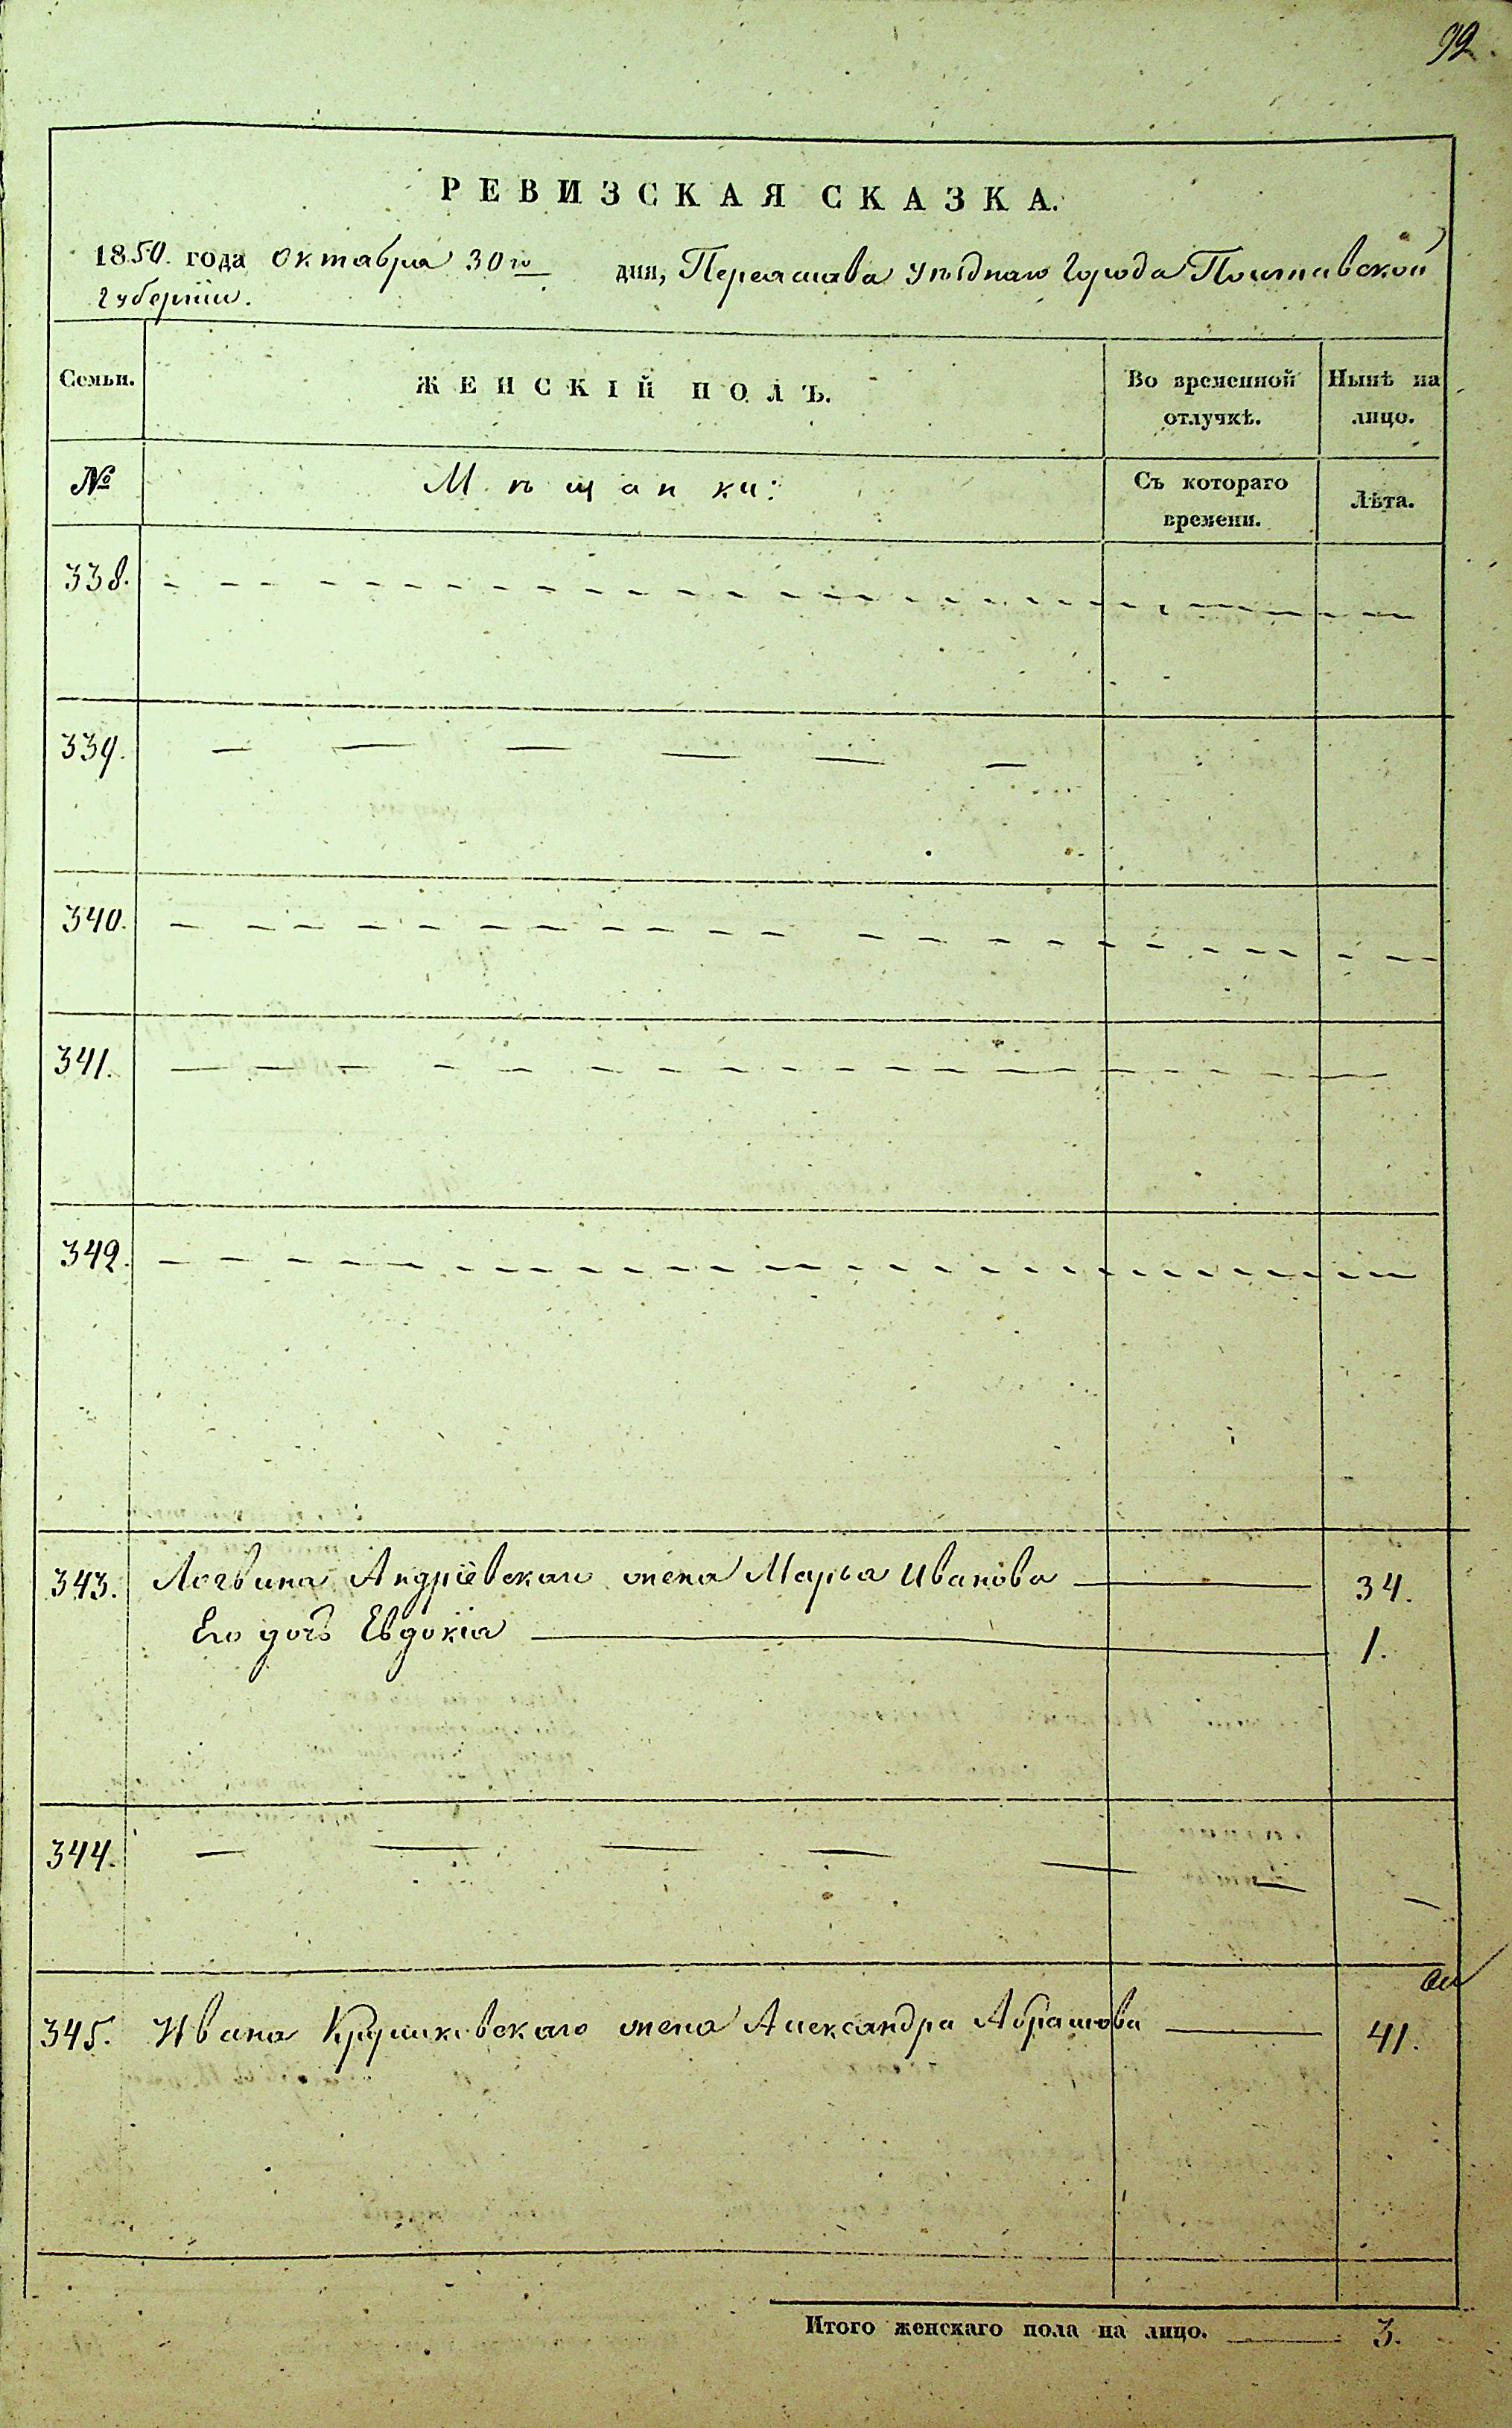 92.
РЕВИЗСКАЯ СКАЗКА.
1850. года Октября 30го дня, Переяслава уѣзднаго Города Полтавской
Губерніи.
Семьи. ЖЕНСКІЙ ПОЛЪ. Во временной отлучкѣ. Нынѣ на лицо.
№ Мѣщанки: Съ котораго времени. Лѣта.
338.
339.
340.
341.
342.
343. Логвина Андріевскаго жена Марья Иванова 34.
Его дочь Евдокія 1.
344.
345. Ивана жена Александра Абрамова 41.
Итого женскаго пола на лицо. 3.